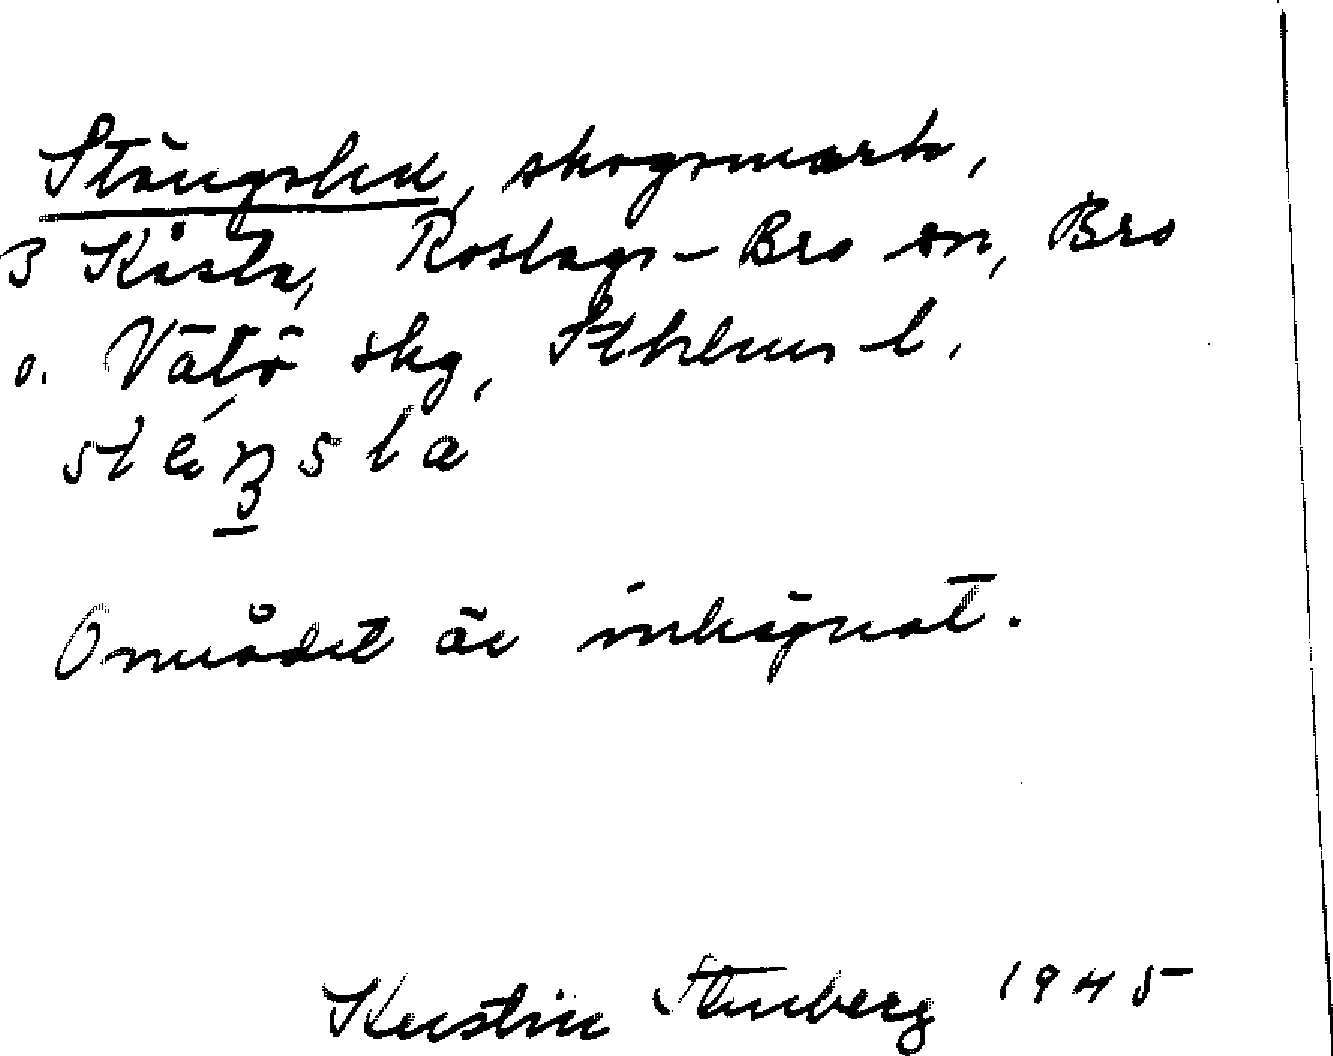 Stängslen, skogsmark,
3 Kårsta, Roslags-Bro sn, Bro
o. Vätö skg, Sthlms l.
Området är inhägnat.
Kerstin Stenberg 1945